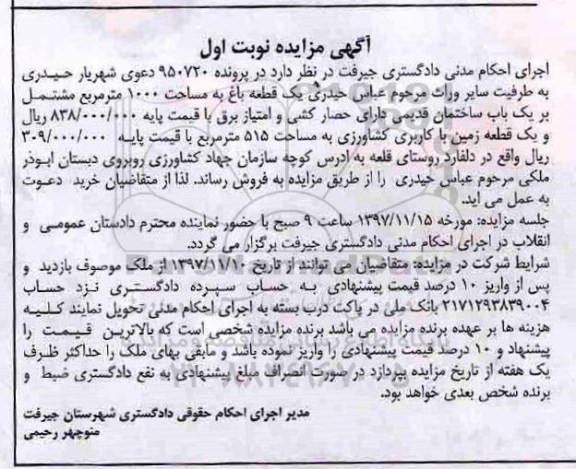 آگهی مزایده نوبت اول
اجرای احکام مدنی دادگستری جیرفت در نظر دارد در پرونده ۹۵۰۷۲۰ دعوی شهریار حیدری
به طرفیت سایر وراث مرحوم عباس حیدری یک قطعه باغ به مساحت ۱۰۰۰ مترمربع مشتمل
بر یک باب ساختمان قدیمی دارای حصار کشی و امتیاز برق با قیمت پایه ۸۳۸/۰۰۰/۰۰۰ ریال
و یک قطعه زمین با کاربری کشاورزی به مساحت ۵۱۵ مترمربع با قیمت پایه ۳۰۹/۰۰۰/۰۰۰
ریال واقع در دلفارد روستای قلعه به ادرس کوچه سازمان جهاد کشاورزی روبروی دبستان ابوذر
ملکی مرحوم عباس حیدری را از طریق مزایده به فروش رساند. لذا از متقاضیان خرید دعوت
به عمل می آید.
جلسه مزایده: مورخه ۱۳۹۷/۱۱/۱۵ ساعت ۹ صبح با حضور نماینده محترم دادستان عمومی و
انقلاب در اجرای احکام مدنی دادگستری جیرفت برگزار می گردد.
شرایط شرکت در مزایده: متقاضیان می توانند از تاریخ ۱۳۹۷/۱۱/۱۰ از ملک موصوف بازدید و
پس از واریز ۱۰ درصد قیمت پیشنهادی به حساب سپرده دادگستری نزد حساب
۲۱۷۱۲۹۳۸۳۹۰۰۴ بانک ملی در پاکت درب بسته به اجرای احکام مدنی تحویل نمایند کلیه
هزینه ها بر عهده برنده مزایده می باشد برنده مزایده شخصی است که بالاترین قیمت را
پیشنهاد و ۱۰ درصد قیمت پیشنهادی را واریز نموده باشد و مابقی بهای ملک را حداکثر ظرف
یک هفته از تاریخ مزایده بپردازد در صورت انصراف مبلغ پیشنهادی به نفع دادگستری ضبط و
برنده شخص بعدی خواهد بود.
مدیر اجرای احکام حقوقی دادگستری شهرستان جیرفت
منوچهر رحیمی